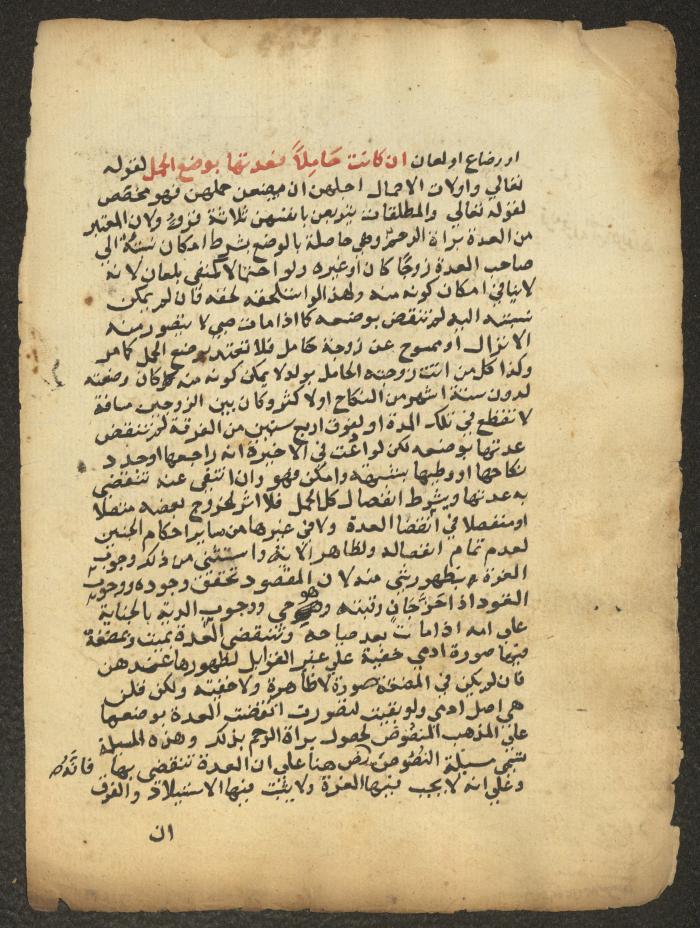 او رضاع او لعان ان كانت حَامِلاً فعدتها بوضع الحمل لقوله
تعالي واولات الاحمال اجلهن ان يضعن حملهن فهو مخصص
لقوله تعالي والمطلقات يتربصن بانفسهن ثلاثة قروء ولان المعتبر
من العدة براة الرحم وهي حاصلة بالوضع بشرط امكان نسبته الي
صاحب العدة زوجًا كان او غيره ولو احتمالا كمنفي بلعان لانه
لا ينافي امكان كونه منه ولهذا لو استلحقه لحقه فان لم يمكن
نسبته اليه لم تنقض بوضعه كما اذا مات صبي لا يتصور منه
الانزال او ممسوح عن زوجة حامل فلا تعتد بوضع الحمل
وكذا كل من اتت زوجته الحامل بولد لا يمكن كونه منه كان وضعته
لدون ستة اشهر من النكاح او لاكثر وكان بين الزوجين مسافة
لا تقطع في تلك المدة او لفوق اربع سنين من الفرقة لم تنقض
عدتها بوضعه لكن لو ادعت في الاخيرة انه راجعها او جدد
نكاحها او وطيها بشبهة وامكن فهو وان انتفي عنه تنقضي
به عدتها ويشرط انفصال كل الحمل فلا اثر لخروج بعضه متصلا
او منفصلا في انقضا العدة ولا في غيرها من ساير احكام الجنين
لعدم تمام انفصاله ولظاهر الاية واستثني من ذلك وجوب
الغرة بظهور شي منه لان المقصود تحقق وجوده ووجوب
القود اذا حَزَّ جَانٍ رقبته وهو حي ووجوب الدية بالجناية
علي امه اذا مات بعد صياحه وتنقضي العدة بميت ومضغة
فيها صورة ادمي خفية علي غير القوابل لظهورها عندهن
فان لم يكن في المضغة صورة لا ظاهرة ولا خفية ولكن قلن
هي اصل ادمي ولو بقيت لتصورت انقضت العدة بوضعها
علي المذهب المنصوص لحصول براة الرحم بذلك وهذه المسيلة
تسمي مسيلة النصوص نص هنا علي ان العدة تنقضي بها
وعلي انه لا يجب فيها الغرة ولا يثبت فيها الاستيلاد والفرق
ان